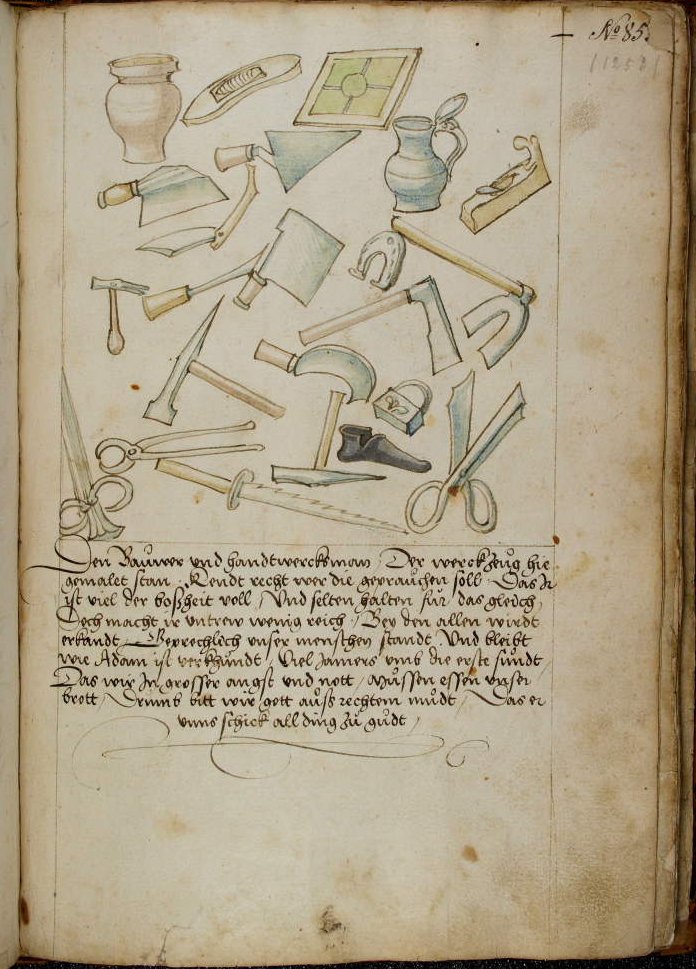 No 85.
Den Bauwer vnd handtwercksman / Der werckzeug hie
gemalet stan / Kendt recht wer die geprauchen soll / Das Ir
ist viel der boßheit voll / Vnd selten halten für das gleich /
Doch macht ir vntrew wenig reich / Bey den allen wirdt
erkandt / Geprechlich vnser menschen standt / Vnd bleibt
wie Adam ist verkhündt / Viel Jamers vmb die erste sündt /
Das wir In grosser angst vnd nott / Müssen essen vnser
brott / Drumb bitt wir gott auß rechtem mudt / Das er
vnns schick all ding zu gudt /